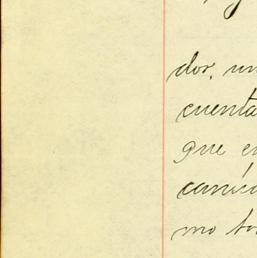 dor, un
cuenta
que en
camin
mo to